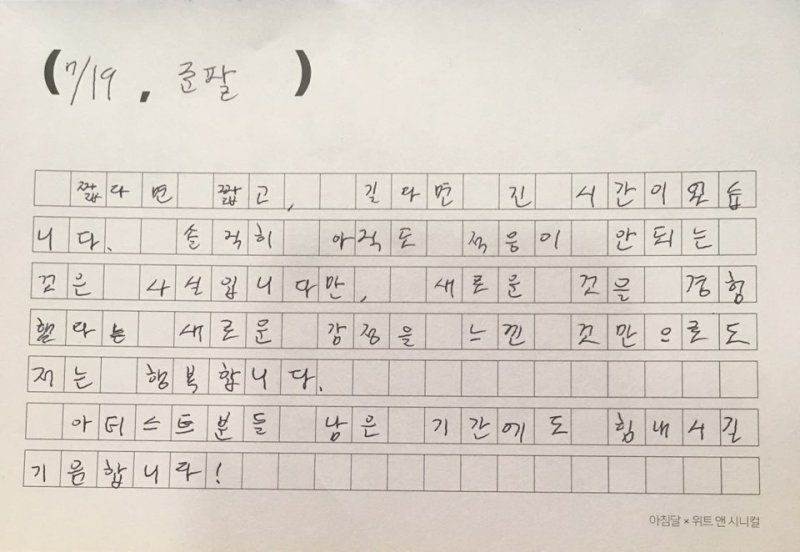 (7/19, 준팔)
짧다면 짧고, 길다면 긴 시간이었습
니다. 솔직히 아직도 적응이 안되는
것은 사실입니다만, 새로운 것을 경험
했다는 새로운 감정을 느낀 것만으로도
저는 행복합니다.
아티스트분들 남은 기간에도 힘내시길
기원합니다!
아침달 × 위트 앤 시니컬